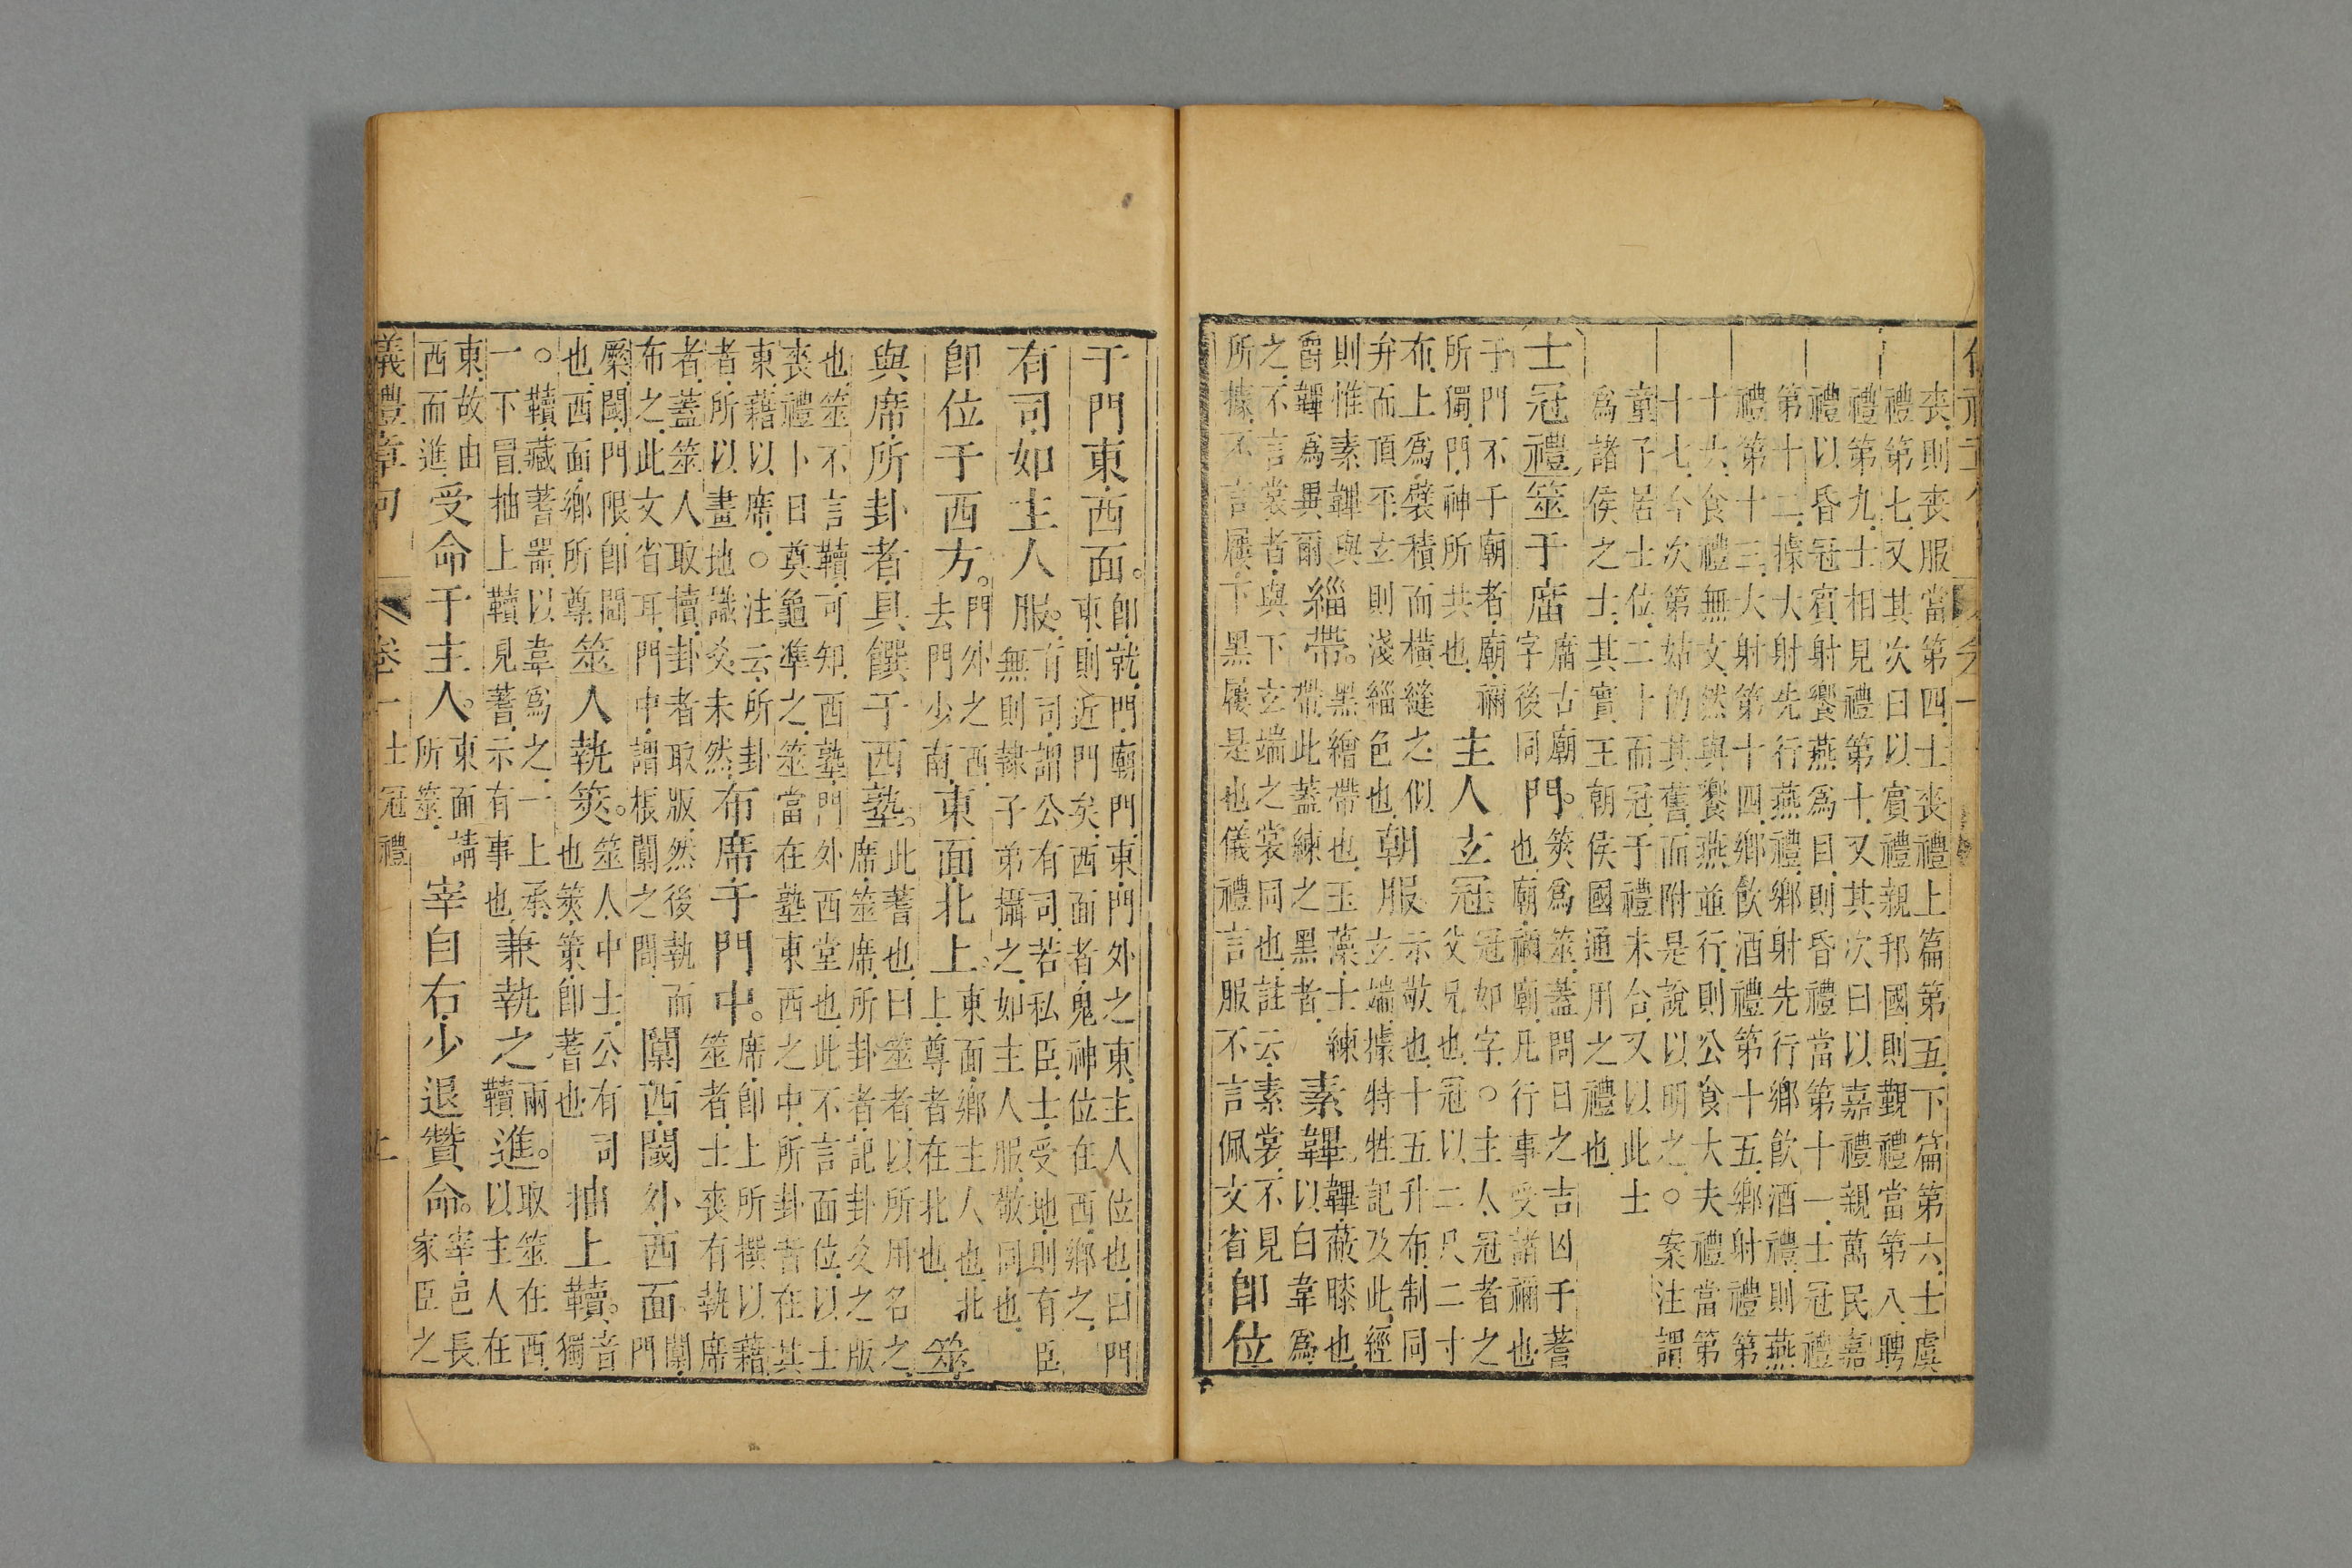 喪則喪服當第四士喪禮上篇第五下篇第六士虞
禮第七又其次曰以賓禮親邦國則覲禮當第八聘
禮第九士相見禮第十又其次曰以嘉禮親萬民嘉
禮以昏冠賓射饗燕爲目則昏禮當第十一士冠禮
第十二據大射先行燕禮鄉射先行鄉飲酒禮則燕
禮第十三大射第十四鄉飲酒禮第十五鄉射禮第
十六食禮無文然與饗燕並行則公食大夫禮當第
十七今次第姑仍其舊而附是說以明之○案注謂
童子居士位二十而冠于禮未合又以此士
爲諸侯之士其實王朝侯國通用之禮也
士冠禮筮于庿庿古廟字後同門。筴爲筮蓋問日之吉凶于蓍也廟禰廟凡行事受諸禰也
于門不于廟者廟禰所獨門神所共也主人玄冠冠如字○主人冠者之父兄也冠以二尺二寸
布上爲襞積而橫縫之似弁而頂不玄則淺緇色也朝服示敬也十五升布制同玄端據特牲記及此經
則惟素韠與爵韠爲異爾緇帶。黑繒帶也玉藻士練帶此蓋練之黑者素韠韠蔽膝也以白韋爲
之不言裳者與下玄端之裳同也註云素裳不見所據不言屨下黑屨是也儀禮言服不言佩文省即位
于門東西面。即就門廟門東門外之東主人位也曰門東則近門矣西面者鬼神位在西鄉之
有司如主人服。有司謂公有司若私臣士受地則有臣無則隸子弟攝之如主人服敬同也
即位于西方。門外之西去門少南東面北上。東面鄉主人也北上尊者在北也筮
與席所卦者具饌于西塾。此蓍也曰筮者以所用名之席筮席所卦者記卦爻之版
也筮不言韇可知西塾門外西堂也此不言面位以士喪禮卜日奠龜準之筮當在塾東西之中所卦者在其
東藉以席○注云所卦者所以畫地識爻未然布席于門中。席即上所撰以藉筮者士喪有執席
者蓋筮人取櫝卦者取版然後執而布之此文省耳門中謂棖闑之間闑西閾外西面闑門
橜閾門限即閫也西面鄉所尊筮人執筴。筮人中士公有司也筴策即蓍也抽上韇。音獨
○韇藏蓍器以韋爲之一上承一下冒抽上韇見蓍示有事也兼執之兩韇進。取筮在西以主人在
東故由西而進受命于主人。東面請所筮宰自右少退贊命。宰邑長家臣之
儀禮章句 卷一 士冠禮